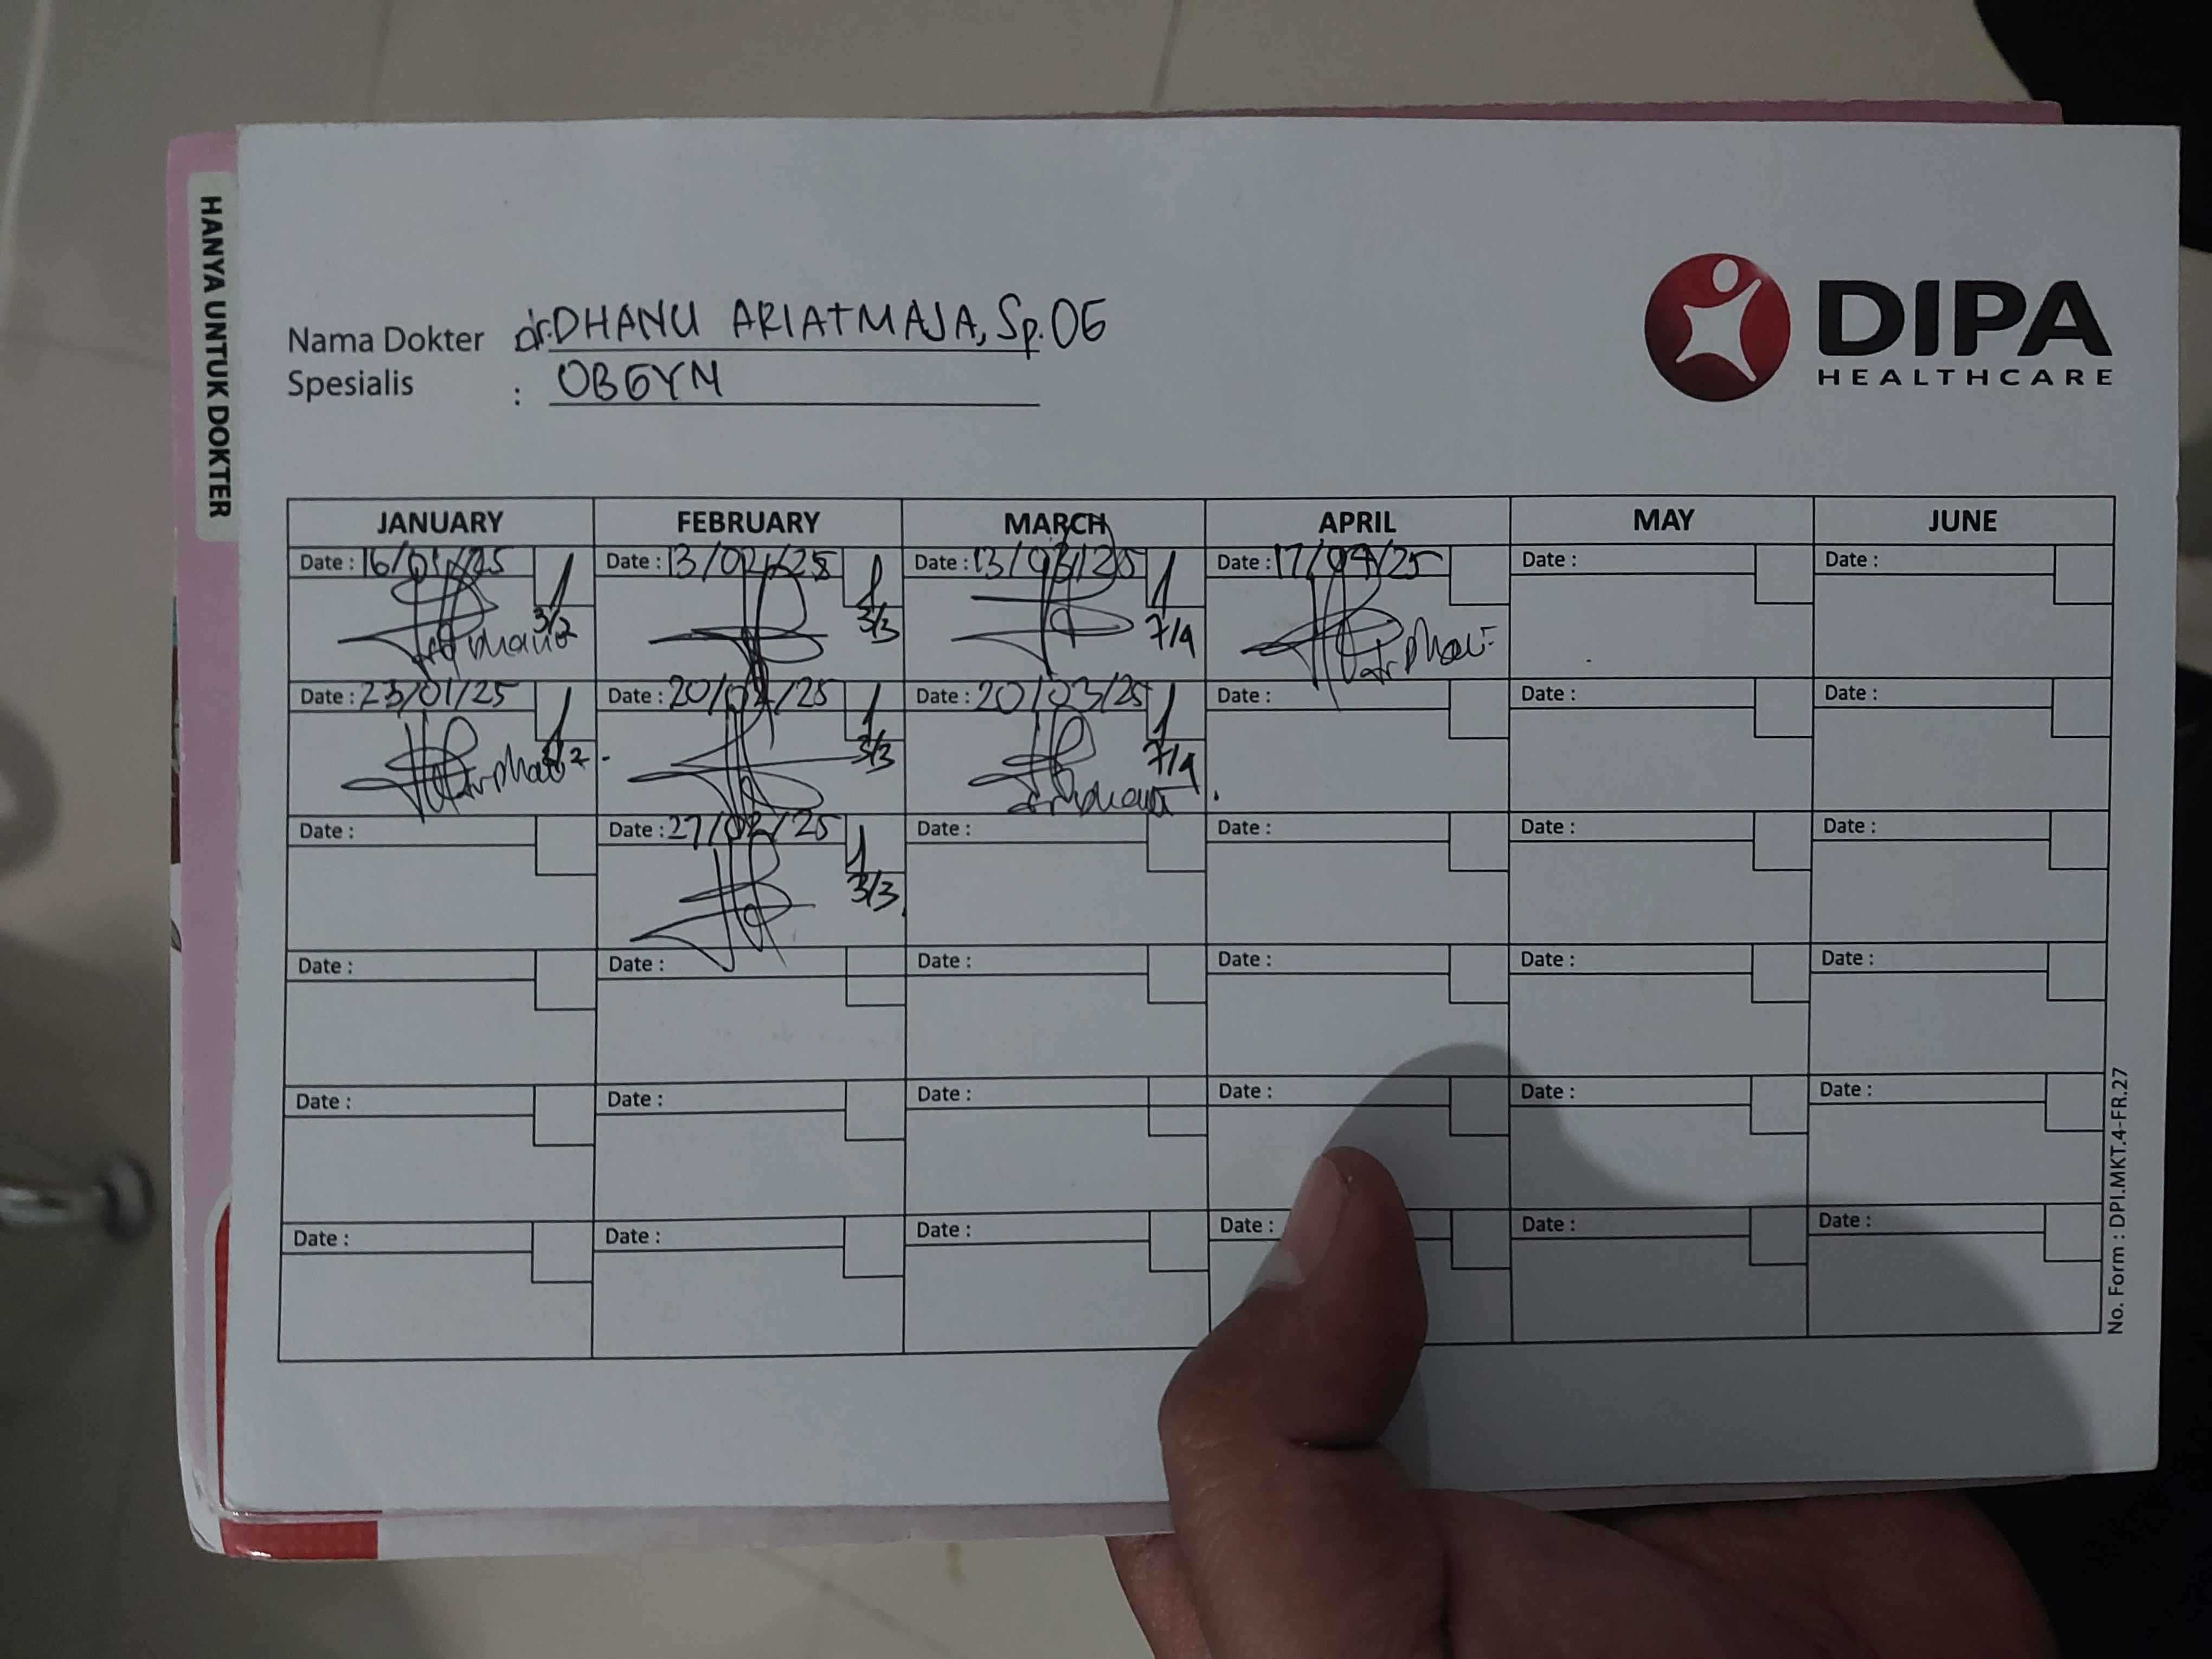 HANYA UNTUK DOKTER
Nama Dokter dr. DHANU ARIATMAJA, Sp.OG
Spesialis : OBGYN
DIPA
HEALTHCARE
JANUARY FEBRUARY MARCH APRIL MAY JUNE
Date : 16/01/25 Date : 13/02/25 Date : 13/03/25 Date : 17/04/25 Date : Date :
3/2 3/3 7/4
dr Dhanu
Date : 23/01/25 Date : 20/02/25 Date : 20/03/25 Date : Date : Date :
3/2 3/3 7/4
Date : Date : 27/02/25 Date : Date : Date : Date :
3/3
Date : Date : Date : Date : Date : Date :
Date : Date : Date : Date : Date : Date :
Date : Date : Date : Date : Date : Date :
No. Form : DPI.MKT.4-FR.27